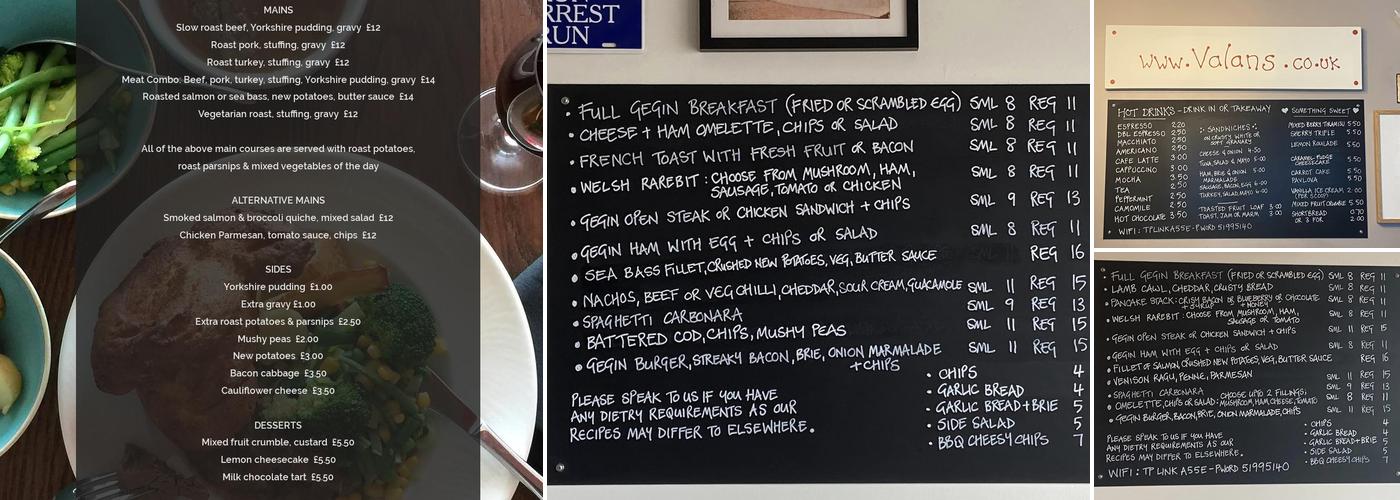 MAINS
Slow roast beef, Yorkshire pudding, gravy £12
Roast pork, stuffing, gravy £12
Roast turkey, stuffing, gravy £12
Meat Combo: Beef, pork, turkey, stuffing, Yorkshire pudding, gravy £14
Roasted salmon or sea bass, new potatoes, butter sauce £14
Vegetarian roast, stuffing, gravy £12
All of the above main courses are served with roast potatoes,
roast parsnips & mixed vegetables of the day
ALTERNATIVE MAINS
Smoked salmon & broccoli quiche, mixed salad £12
Chicken Parmesan, tomato sauce, chips £12
SIDES
Yorkshire pudding £1.00
Extra gravy £1.00
Extra roast potatoes & parsnips £2.50
Mushy peas £2.00
New potatoes £3.00
Bacon cabbage £3.50
Cauliflower cheese £3.50
DESSERTS
Mixed fruit crumble, custard £5.50
Lemon cheesecake £5.50
Milk chocolate tart £5.50
RREST
RUN
• FULL GEGIN BREAKFAST (FRIED OR SCRAMBLED EGG) SML 8 REG 11
• CHEESE + HAM OMELETTE, CHIPS OR SALAD SML 8 REG 11
• FRENCH TOAST WITH FRESH FRUIT OR BACON SML 8 REG 11
• WELSH RAREBIT : CHOOSE FROM MUSHROOM, HAM, SML 8 REG 11
SAUSAGE, TOMATO OR CHICKEN
• GEGIN OPEN STEAK OR CHICKEN SANDWICH + CHIPS SML 9 REG 13
• GEGIN HAM WITH EGG + CHIPS OR SALAD SML 8 REG 11
• SEA BASS FILLET, CRUSHED NEW POTATOES, VEG, BUTTER SAUCE REG 16
• NACHOS, BEEF OR VEG CHILLI, CHEDDAR, SOUR CREAM, GUACAMOLE SML 11 REG 15
• SPAGHETTI CARBONARA SML 9 REG 13
• BATTERED COD, CHIPS, MUSHY PEAS SML 11 REG 15
• GEGIN BURGER, STREAKY BACON, BRIE, ONION MARMALADE SML 11 REG 15
+ CHIPS
• CHIPS 4
• GARLIC BREAD 4
• GARLIC BREAD + BRIE 5
• SIDE SALAD 5
• BBQ CHEESY CHIPS 7
PLEASE SPEAK TO US IF YOU HAVE
ANY DIETRY REQUIREMENTS AS OUR
RECIPES MAY DIFFER TO ELSEWHERE.
www.Valans.co.uk
HOT DRINKS - DRINK IN OR TAKEAWAY
ESPRESSO 2.20
DBL ESPRESSO 2.50
MACCHIATO 2.50
AMERICANO 2.50
CAFE LATTE 3.00
CAPPUCCINO 3.00
MOCHA 3.50
TEA 2.50
PEPPERMINT 2.50
CAMOMILE 2.50
HOT CHOCOLATE 3.50
SANDWICHES
ON CRUSTY WHITE OR
SOFT GRANARY
CHEESE & ONION 4.50
TUNA, SALAD & MAYO 5.00
HAM, BRIE & ONION 5.00
MARMALADE
SAUSAGE, BACON, EGG 6.00
TURKEY, SALAD, MAYO 6.00
TOASTED FRUIT LOAF 3.00
TOAST, JAM OR MARM 3.00
SOMETHING SWEET
MIXED BERRY TIRAMISU 5.50
SHERRY TRIFLE 5.50
LEMON ROULADE 5.50
CARAMEL FUDGE 5.50
CHEESECAKE
CARROT CAKE 5.50
PAVLOVA 5.50
VANILLA ICE CREAM 2.00
(PER SCOOP)
MIXED FRUIT CRUMBLE 5.50
SHORTBREAD 0.70
OR 3 FOR 2.00
WIFI : TPLINKA55E - PWORD 51995140
• FULL GEGIN BREAKFAST (FRIED OR SCRAMBLED EGG) SML 8 REG 11
• LAMB CAWL, CHEDDAR, CRUSTY BREAD SML 8 REG 11
• PANCAKE STACK: CRISPY BACON OR BLUEBERRY OR CHOCOLATE SML 8 REG 11
+ SYRUP + HONEY
• WELSH RAREBIT : CHOOSE FROM MUSHROOM, HAM, SML 8 REG 11
SAUSAGE OR TOMATO
• GEGIN OPEN STEAK OR CHICKEN SANDWICH + CHIPS SML 11 REG 15
• GEGIN HAM WITH EGG + CHIPS OR SALAD SML 8 REG 11
• FILLET OF SALMON, CRUSHED NEW POTATOES, VEG, BUTTER SAUCE REG 16
• VENISON RAGU, PENNE, PARMESAN SML 11 REG 15
• SPAGHETTI CARBONARA SML 9 REG 13
• OMELETTE, CHIPS OR SALAD: CHOOSE UPTO 2 FILLINGS; SML 8 REG 11
MUSHROOM, HAM, CHEESE, TOMATO
• GEGIN BURGER, BACON, BRIE, ONION MARMALADE, CHIPS SML 11 REG 15
• CHIPS 4
• GARLIC BREAD 4
• GARLIC BREAD + BRIE 5
• SIDE SALAD 5
• BBQ CHEESY CHIPS 7
PLEASE SPEAK TO US IF YOU HAVE
ANY DIETRY REQUIREMENTS AS OUR
RECIPES MAY DIFFER TO ELSEWHERE.
WIFI : TP LINK A55E - PWORD 51995140